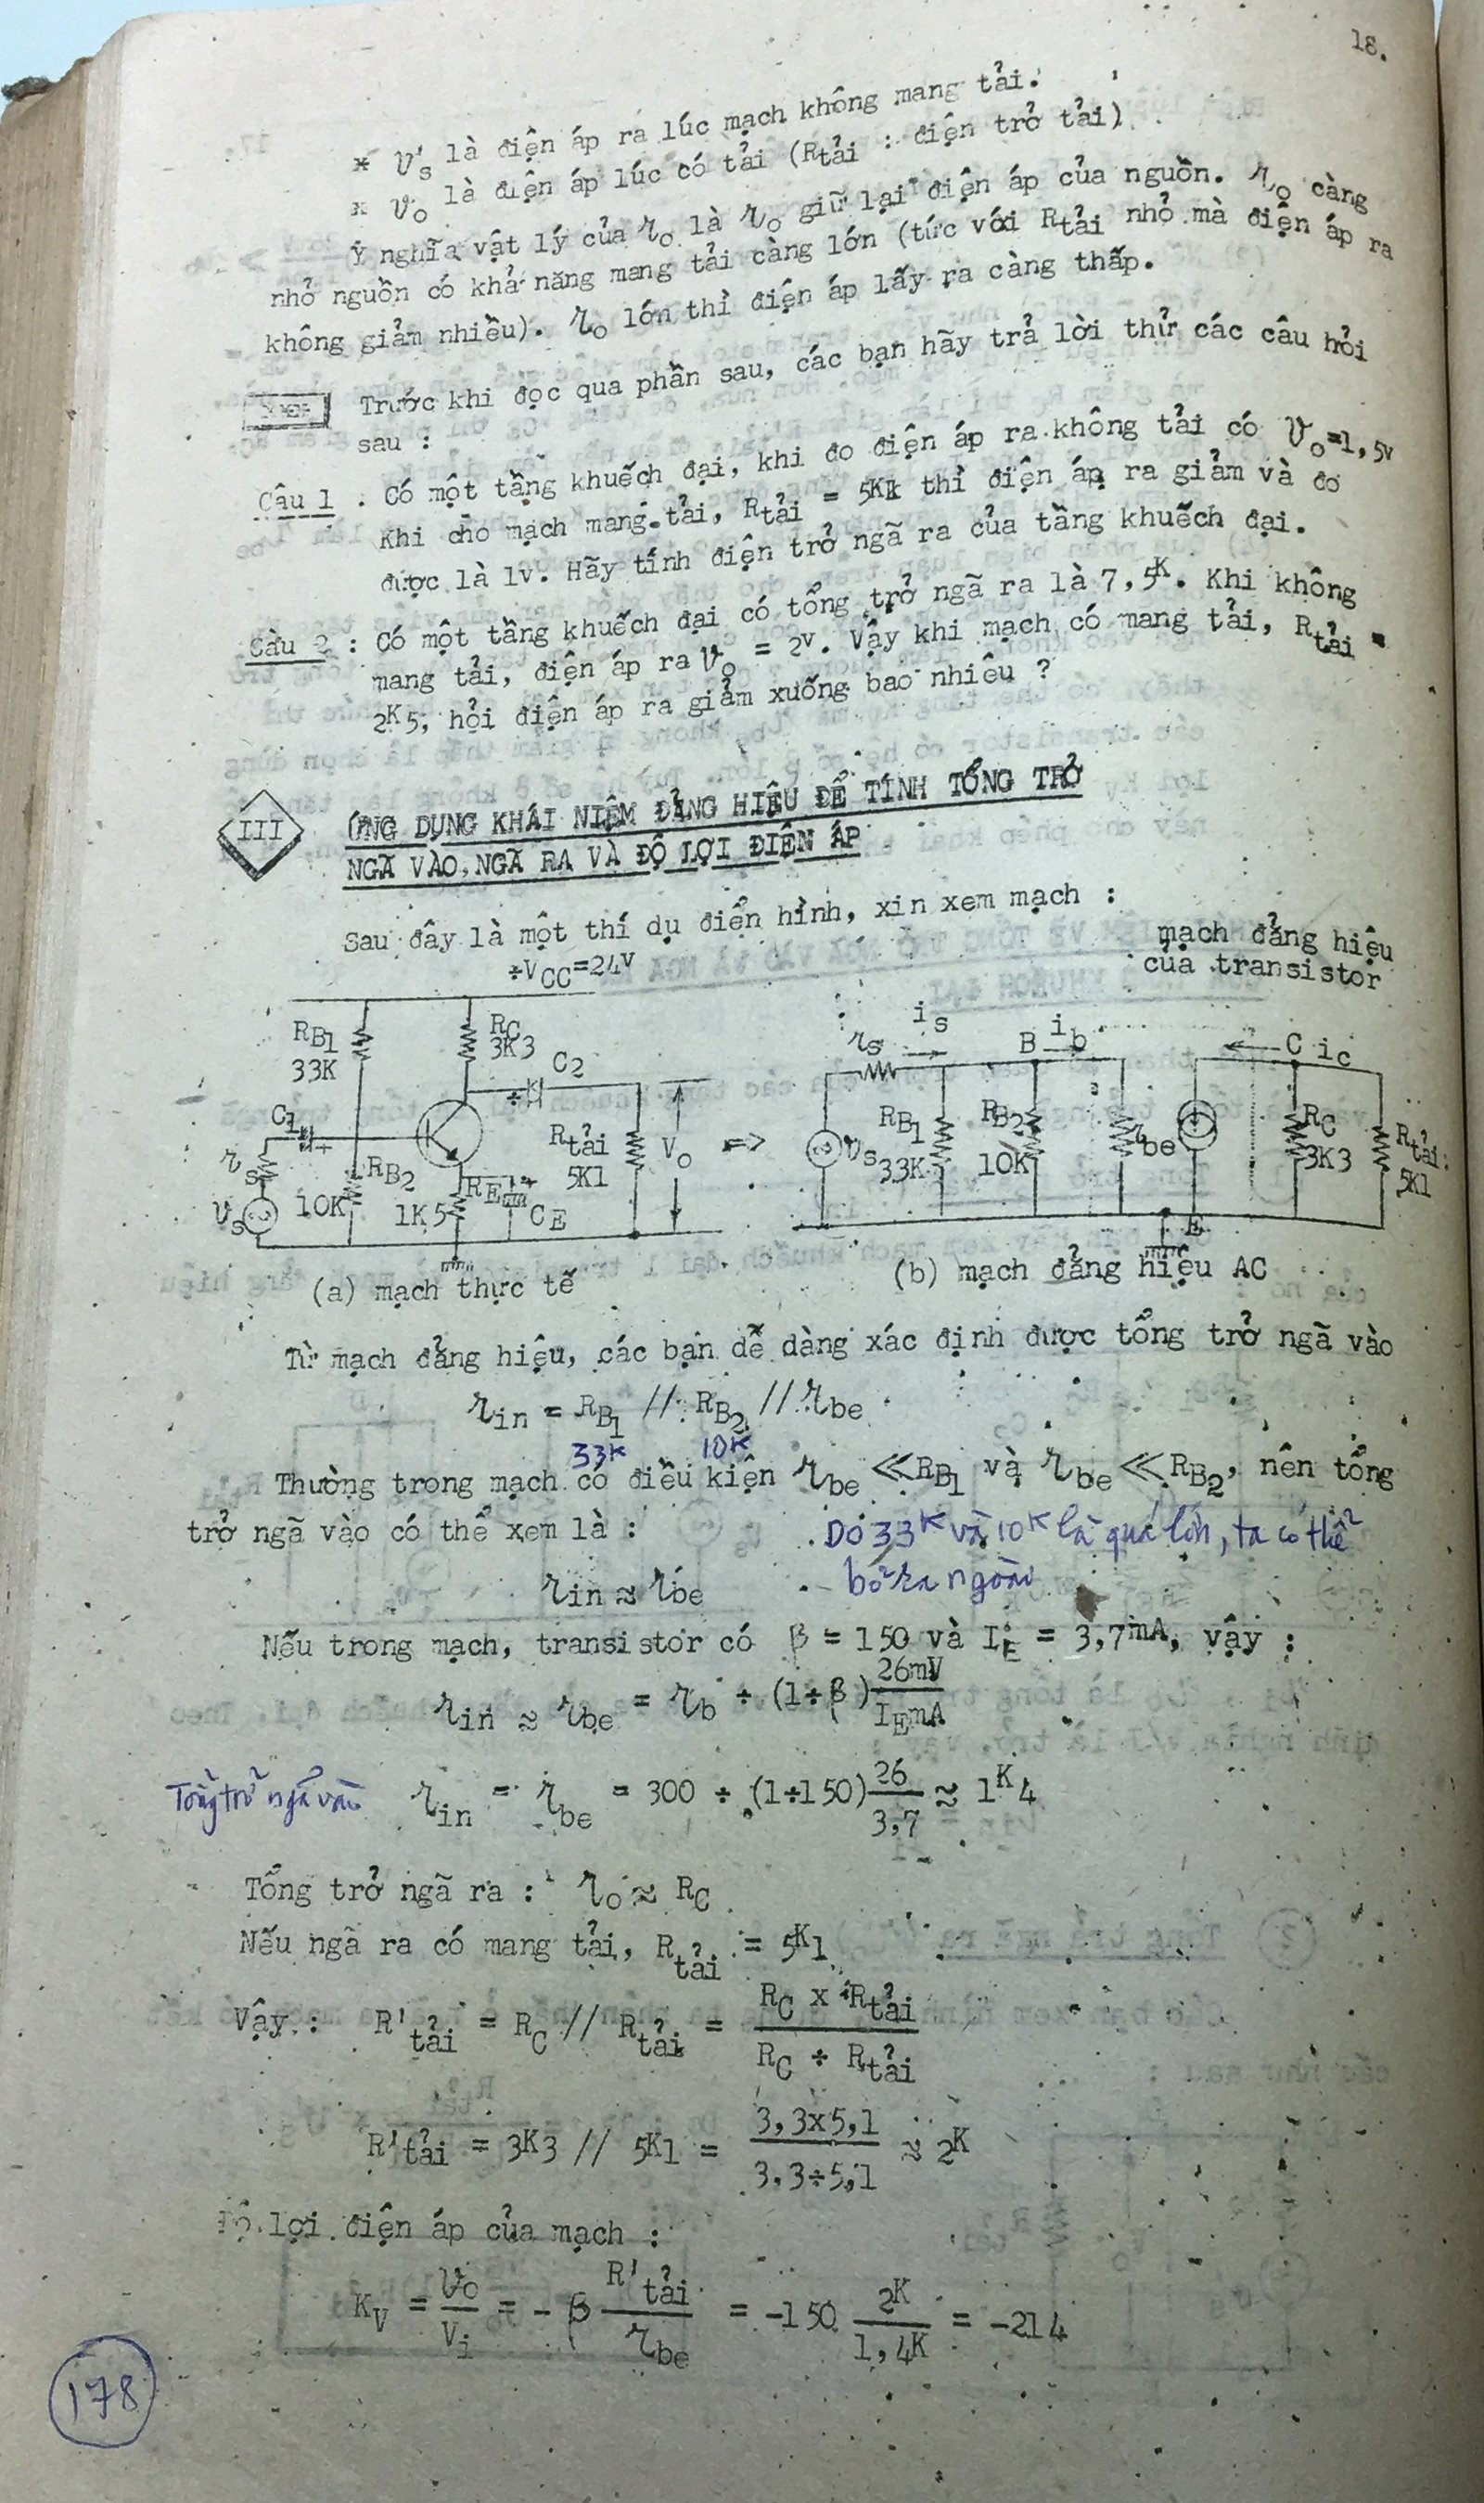 18.
* v's là điện áp ra lúc mạch không mang tải.
* vo là điện áp lúc có tải (Rtải : điện trở tải)
Ý nghĩa vật lý của ro là ro giữ lại điện áp của nguồn. ro càng
nhỏ nguồn có khả năng mang tải càng lớn (tức với Rtải nhỏ mà điện áp ra
không giảm nhiều). ro lớn thì điện áp lấy ra càng thấp.
Trước khi đọc qua phần sau, các bạn hãy trả lời thử các câu hỏi
sau :
Câu 1 . Có một tầng khuếch đại, khi đo điện áp ra không tải có vo=1,5v
Khi cho mạch mang tải, Rtải = 5K thì điện áp ra giảm và đo
được là 1v. Hãy tính điện trở ngã ra của tầng khuếch đại.
Câu 2 : Có một tầng khuếch đại có tổng trở ngã ra là 7,5K. Khi không
mang tải, điện áp ra vo = 2v. Vậy khi mạch có mang tải, Rtải =
2K5, hỏi điện áp ra giảm xuống bao nhiêu ?
III ỨNG DỤNG KHÁI NIỆM ĐẲNG HIỆU ĐỂ TÍNH TỔNG TRỞ
NGÃ VÀO, NGÃ RA VÀ ĐỘ LỢI ĐIỆN ÁP
Sau đây là một thí dụ điển hình, xin xem mạch :
+VCC=24V
mạch đẳng hiệu
của transistor
RB1
33K
RC
3K3
C2
C1
rs
vs
10K
RB2
1K5
RE
CE
Rtải
5K1
Vo
=>
rs
is
B
ib
C
ic
vs
RB1
33K
RB2
10K
rbe
RC
3K3
Rtải
5K1
E
(a) mạch thực tế
(b) mạch đẳng hiệu AC
Từ mạch đẳng hiệu, các bạn dễ dàng xác định được tổng trở ngã vào
rin = RB1 // RB2 // rbe
33K 10K
Thường trong mạch có điều kiện rbe ≪ RB1 và rbe ≪ RB2, nên tổng
trở ngã vào có thể xem là :
Do 33K và 10K là quá lớn, ta có thể
bỏ ra ngoài
rin ≈ rbe
Nếu trong mạch, transistor có β = 150 và IE = 3,7mA, vậy :
rin ≈ rbe = rb + (1+β) 26mV / IEmA
Tổng trở ngã vào
rin = rbe = 300 + (1+150) 26 / 3,7 ≈ 1K4
Tổng trở ngã ra : ro ≈ RC
Nếu ngã ra có mang tải, Rtải = 5K1
Vậy : R'tải = RC // Rtải = RC x Rtải / RC + Rtải
R'tải = 3K3 // 5K1 = 3,3x5,1 / 3,3+5,1 ≈ 2K
Độ lợi điện áp của mạch :
KV = vo / Vi = - β R'tải / rbe = -150 2K / 1,4K = -214
178